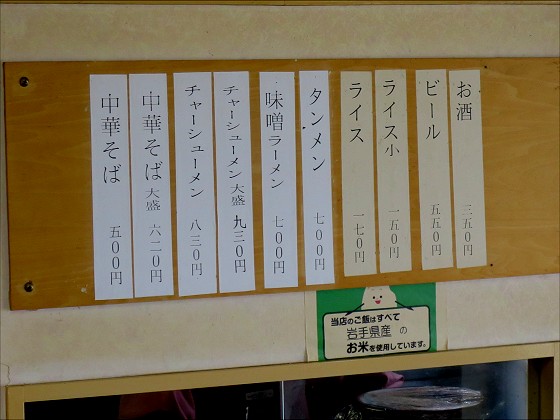 お酒 三五〇円
ビール 五五〇円
ライス小 一五〇円
ライス 一七〇円
タンメン 七〇〇円
味噌ラーメン 七〇〇円
チャーシューメン 大盛 九三〇円
チャーシューメン 八三〇円
中華そば 大盛 六二〇円
中華そば 五〇〇円
当店のご飯はすべて
岩手県産の
お米を使用しています。